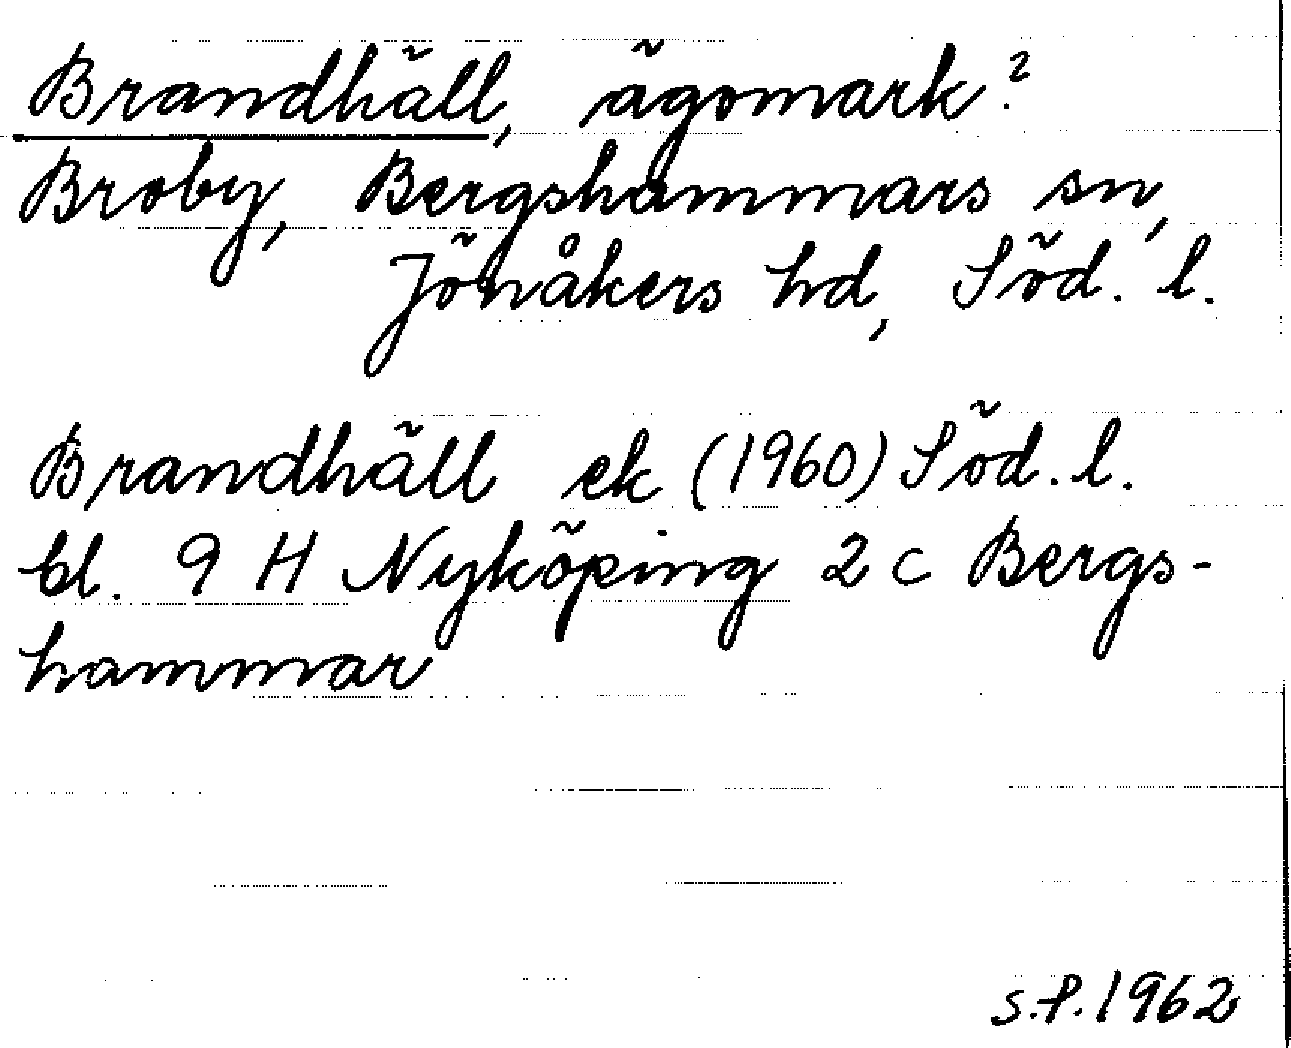 Brandhäll, ägomark?
Broby, Bergshammars sn,
Jönåkers hd, Söd. l.
Brandhäll ek (1960) Söd. l.
bl. 9 H Nyköping 2 c Bergs-
hammar
S.P. 1962